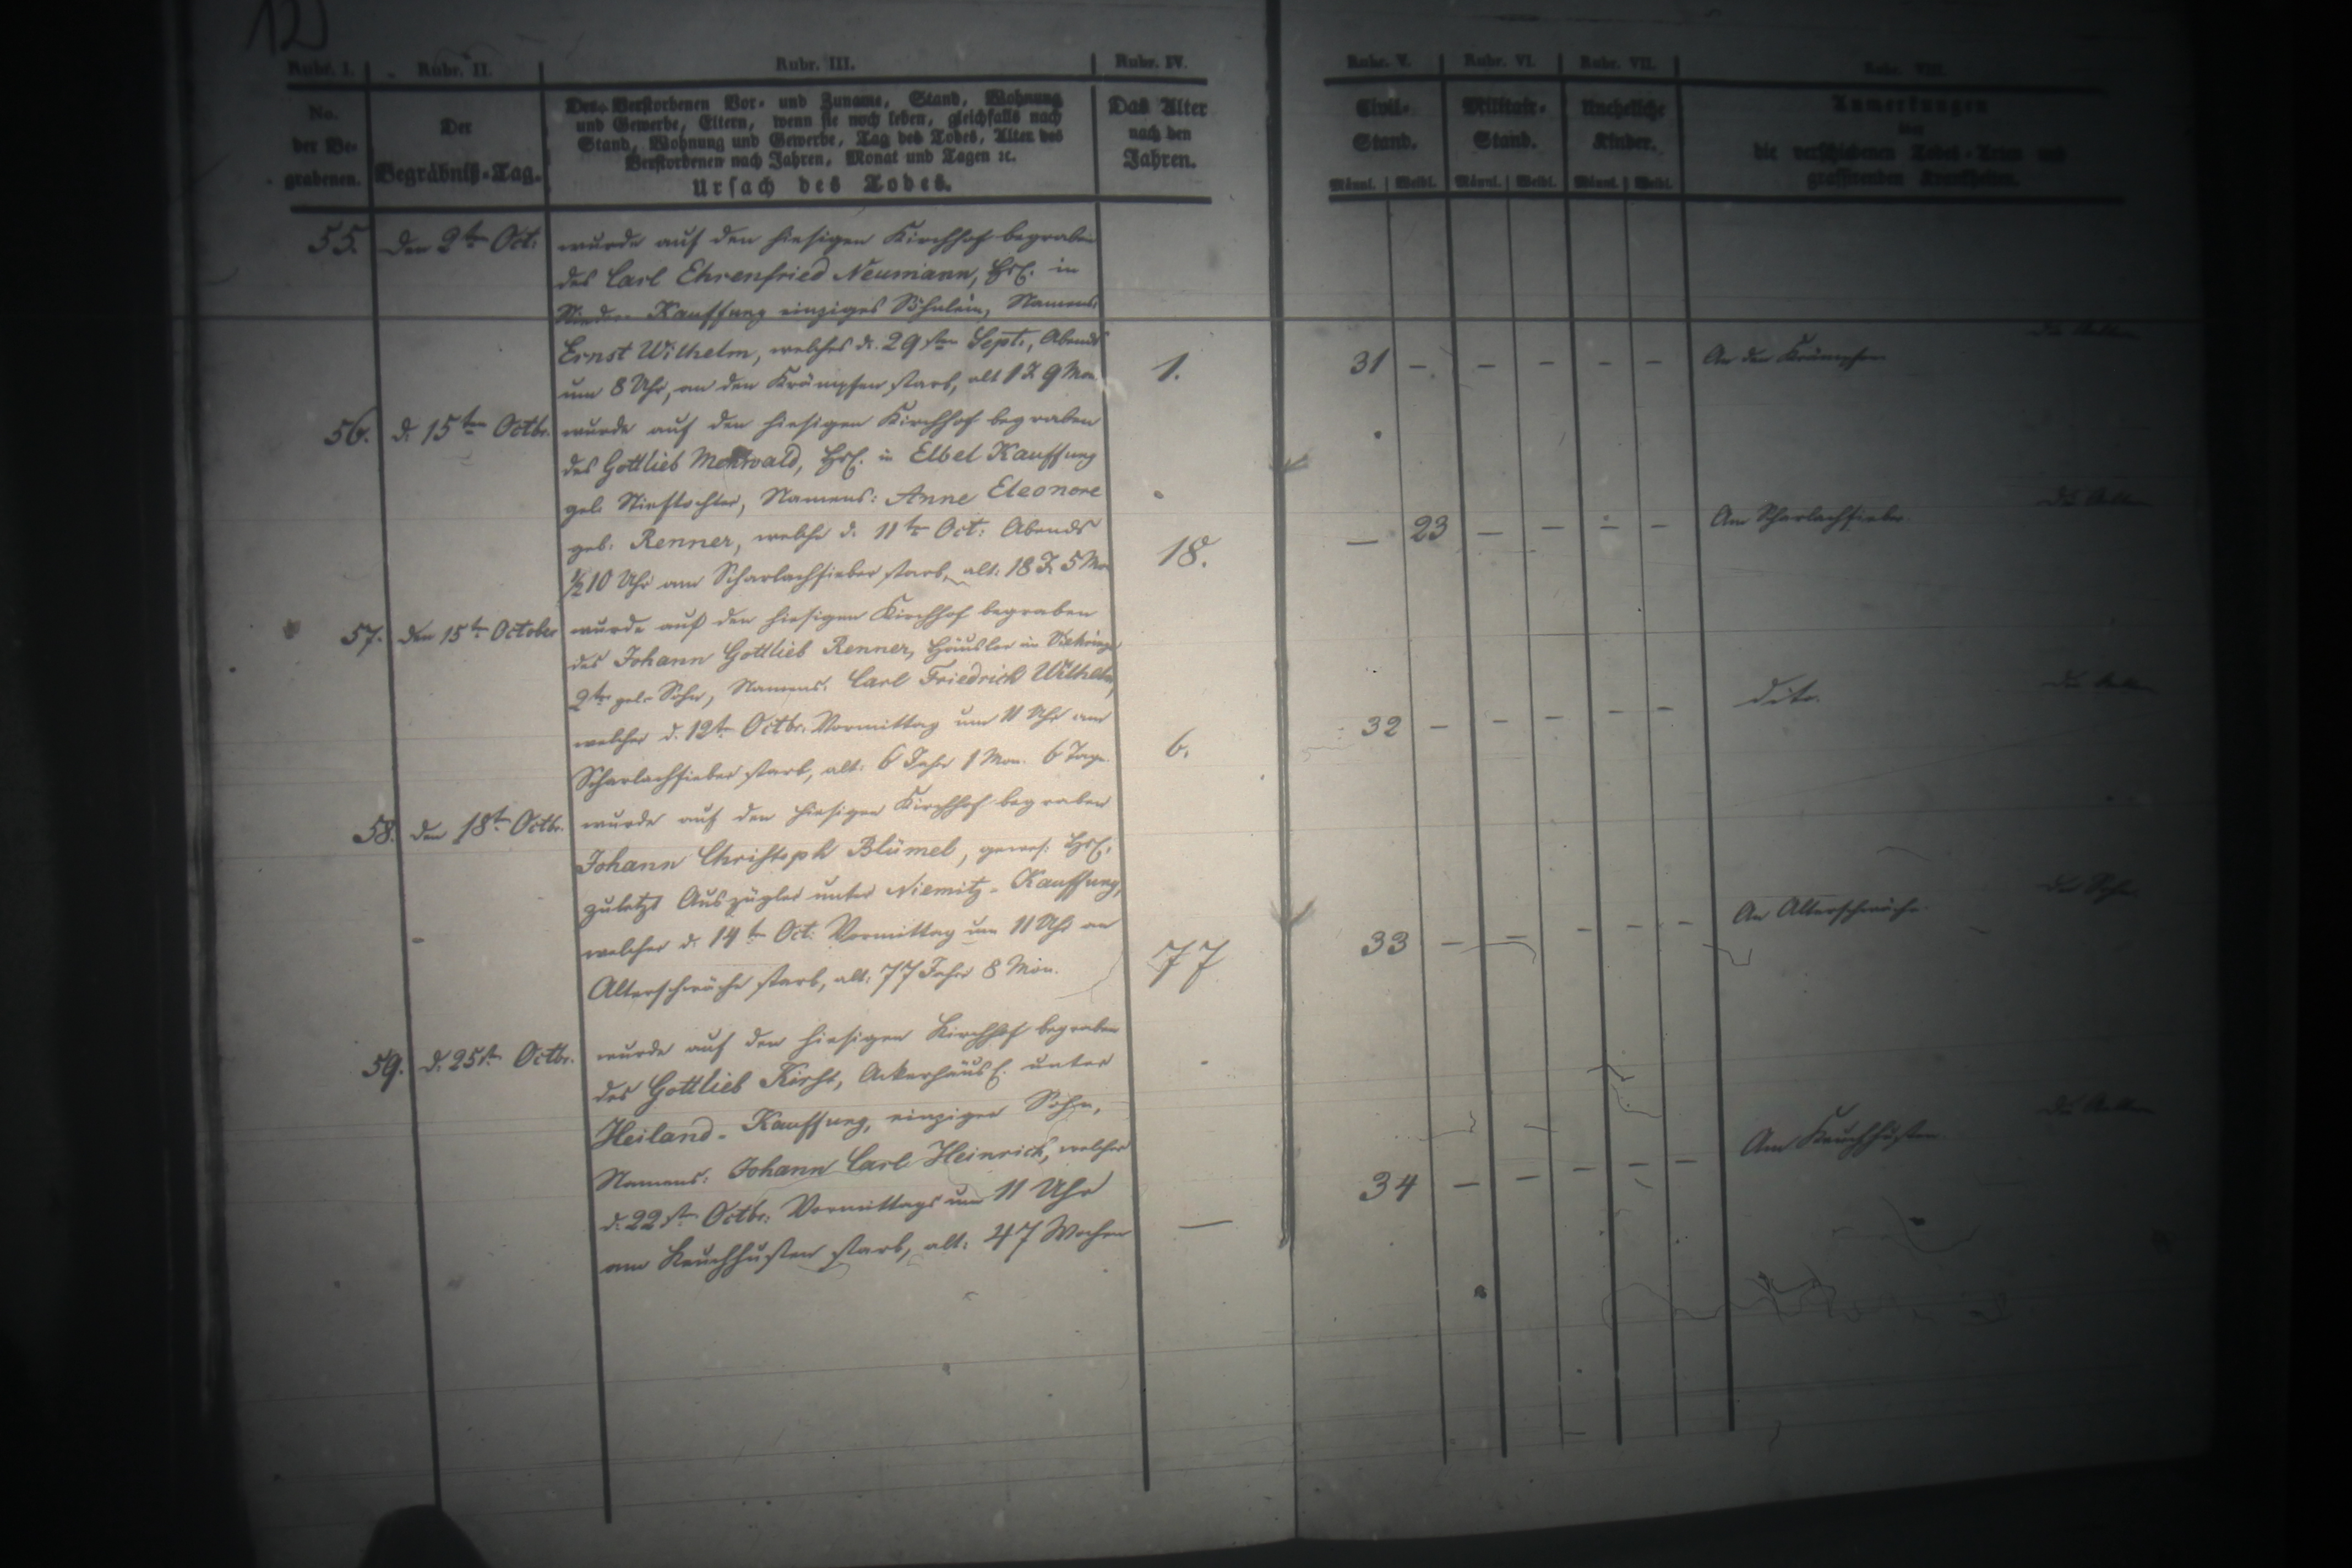 12
Rubr. I. Rubr. II. Rubr. III. Rubr. IV. Rubr. V. Rubr. VI. Rubr. VII. Rubr. VIII.
No.
der Be-
grabenen.
Der
Begräbniß-Tag.
Des Verstorbenen Vor- und Zuname, Stand, Wohnung
und Gewerbe, Eltern, wenn sie noch leben, gleichfalls nach
Stand, Wohnung und Gewerbe, Tag des Todes, Alter des
Verstorbenen nach Jahren, Monat und Tagen ꝛc.
Ursach des Todes.
Das Alter
nach den
Jahren.
Civil-
Stand.
Männl. Weibl.
Militair-
Stand.
Männl. Weibl.
Uneheliche
Kinder.
Männl. Weibl.
Anmerkungen
über
die verschiedenen Todes-Arten und
grassirenden Krankheiten.
55. den 2ten Oct: wurde auf den hiesigen Kirchhof begraben
des Carl Ehrenfried Neumann, in
Nieder-Kauffung einziges Söhnlein, Namens
Ernst Wilhelm, welches d. 29sten Sept., Abends
um 8 Uhr, an den Krämpfen starb, alt 1 J. 9 Mon. 1. 31 – – – – – An den Krämpfen
56. d. 15ten Octbr. wurde auf den hiesigen Kirchhof begraben
des Gottlieb in Elbel Kauffung
gel. Stieftochter, Namens: Anne Eleonore
geb. Renner, welche d. 11ten Oct: Abends
½10 Uhr am Scharlachfieber starb, alt: 18 J. 5 Mon 18. – 23 – – – – Am Scharlachfieber.
57. den 15ten October wurde auf den hiesigen Kirchhof begraben
des Johann Gottlieb Renner, Häusler in
2ter gel. Sohn, Namens: Carl Friedrich Wilhelm,
welcher d. 12ten Octbr. Vormittag um 11 Uhr am
Scharlachfieber starb, alt: 6 Jahr 1 Mon. 6 Tage. 6. 32 – – – – – dito.
58. den 18ten Octbr. wurde auf den hiesigen Kirchhof begraben
Johann Christoph Blümel, gewes:
zuletzt Auszügler unter Niemitz-Kauffung,
welcher d. 14ten Oct: Vormittag um 11 Uhr an
Alterschwäche starb, alt: 77 Jahr 8 Mon. 77 33 – – – – – An Alterschwäche
59. d. 25sten Octbr. wurde auf den hiesigen Kirchhof begraben
des Gottlieb Ackerhäusl. unter
Heiland-Kauffung, einziger Sohn,
Namens: Johann Carl Heinrich, welcher
d. 22sten Octbr: Vormittags um 11 Uhr
am Keuchhusten starb, alt: 47 Wochen – 34 – – – – – Am Keuchhusten